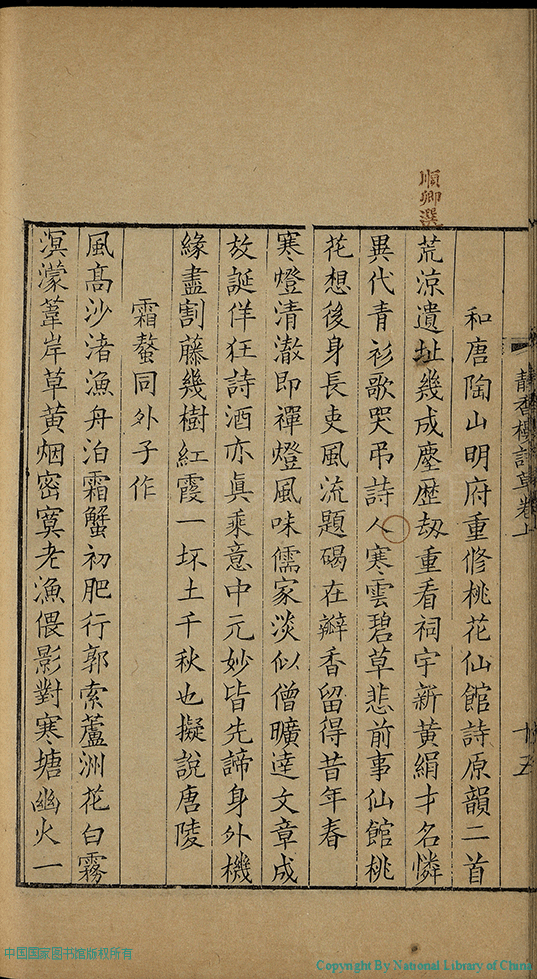 順卿選
靜香樓詩草卷上
十五
和唐陶山明府重修桃花仙館詩原韻二首
荒涼遺址幾成塵歴刼重看祠宇新黃絹才名憐
異代青衫歌哭弔詩人寒雲碧草悲前事仙館桃
花想後身長吏風流題碣在瓣香留得昔年春
寒燈清澈即禪燈風味儒家淡似僧曠達文章成
放誕佯狂詩酒亦眞乘意中元妙皆先諦身外機
緣盡割藤幾樹紅霞一坏土千秋也擬說唐陵
霜螯同外子作
風高沙渚漁舟泊霜蟹初肥行郭索蘆洲花白霧
溟濛葦岸草黃烟密寞老漁偎影對寒塘幽火一
中国国家图书馆版权所有
Copyright By National Library of China